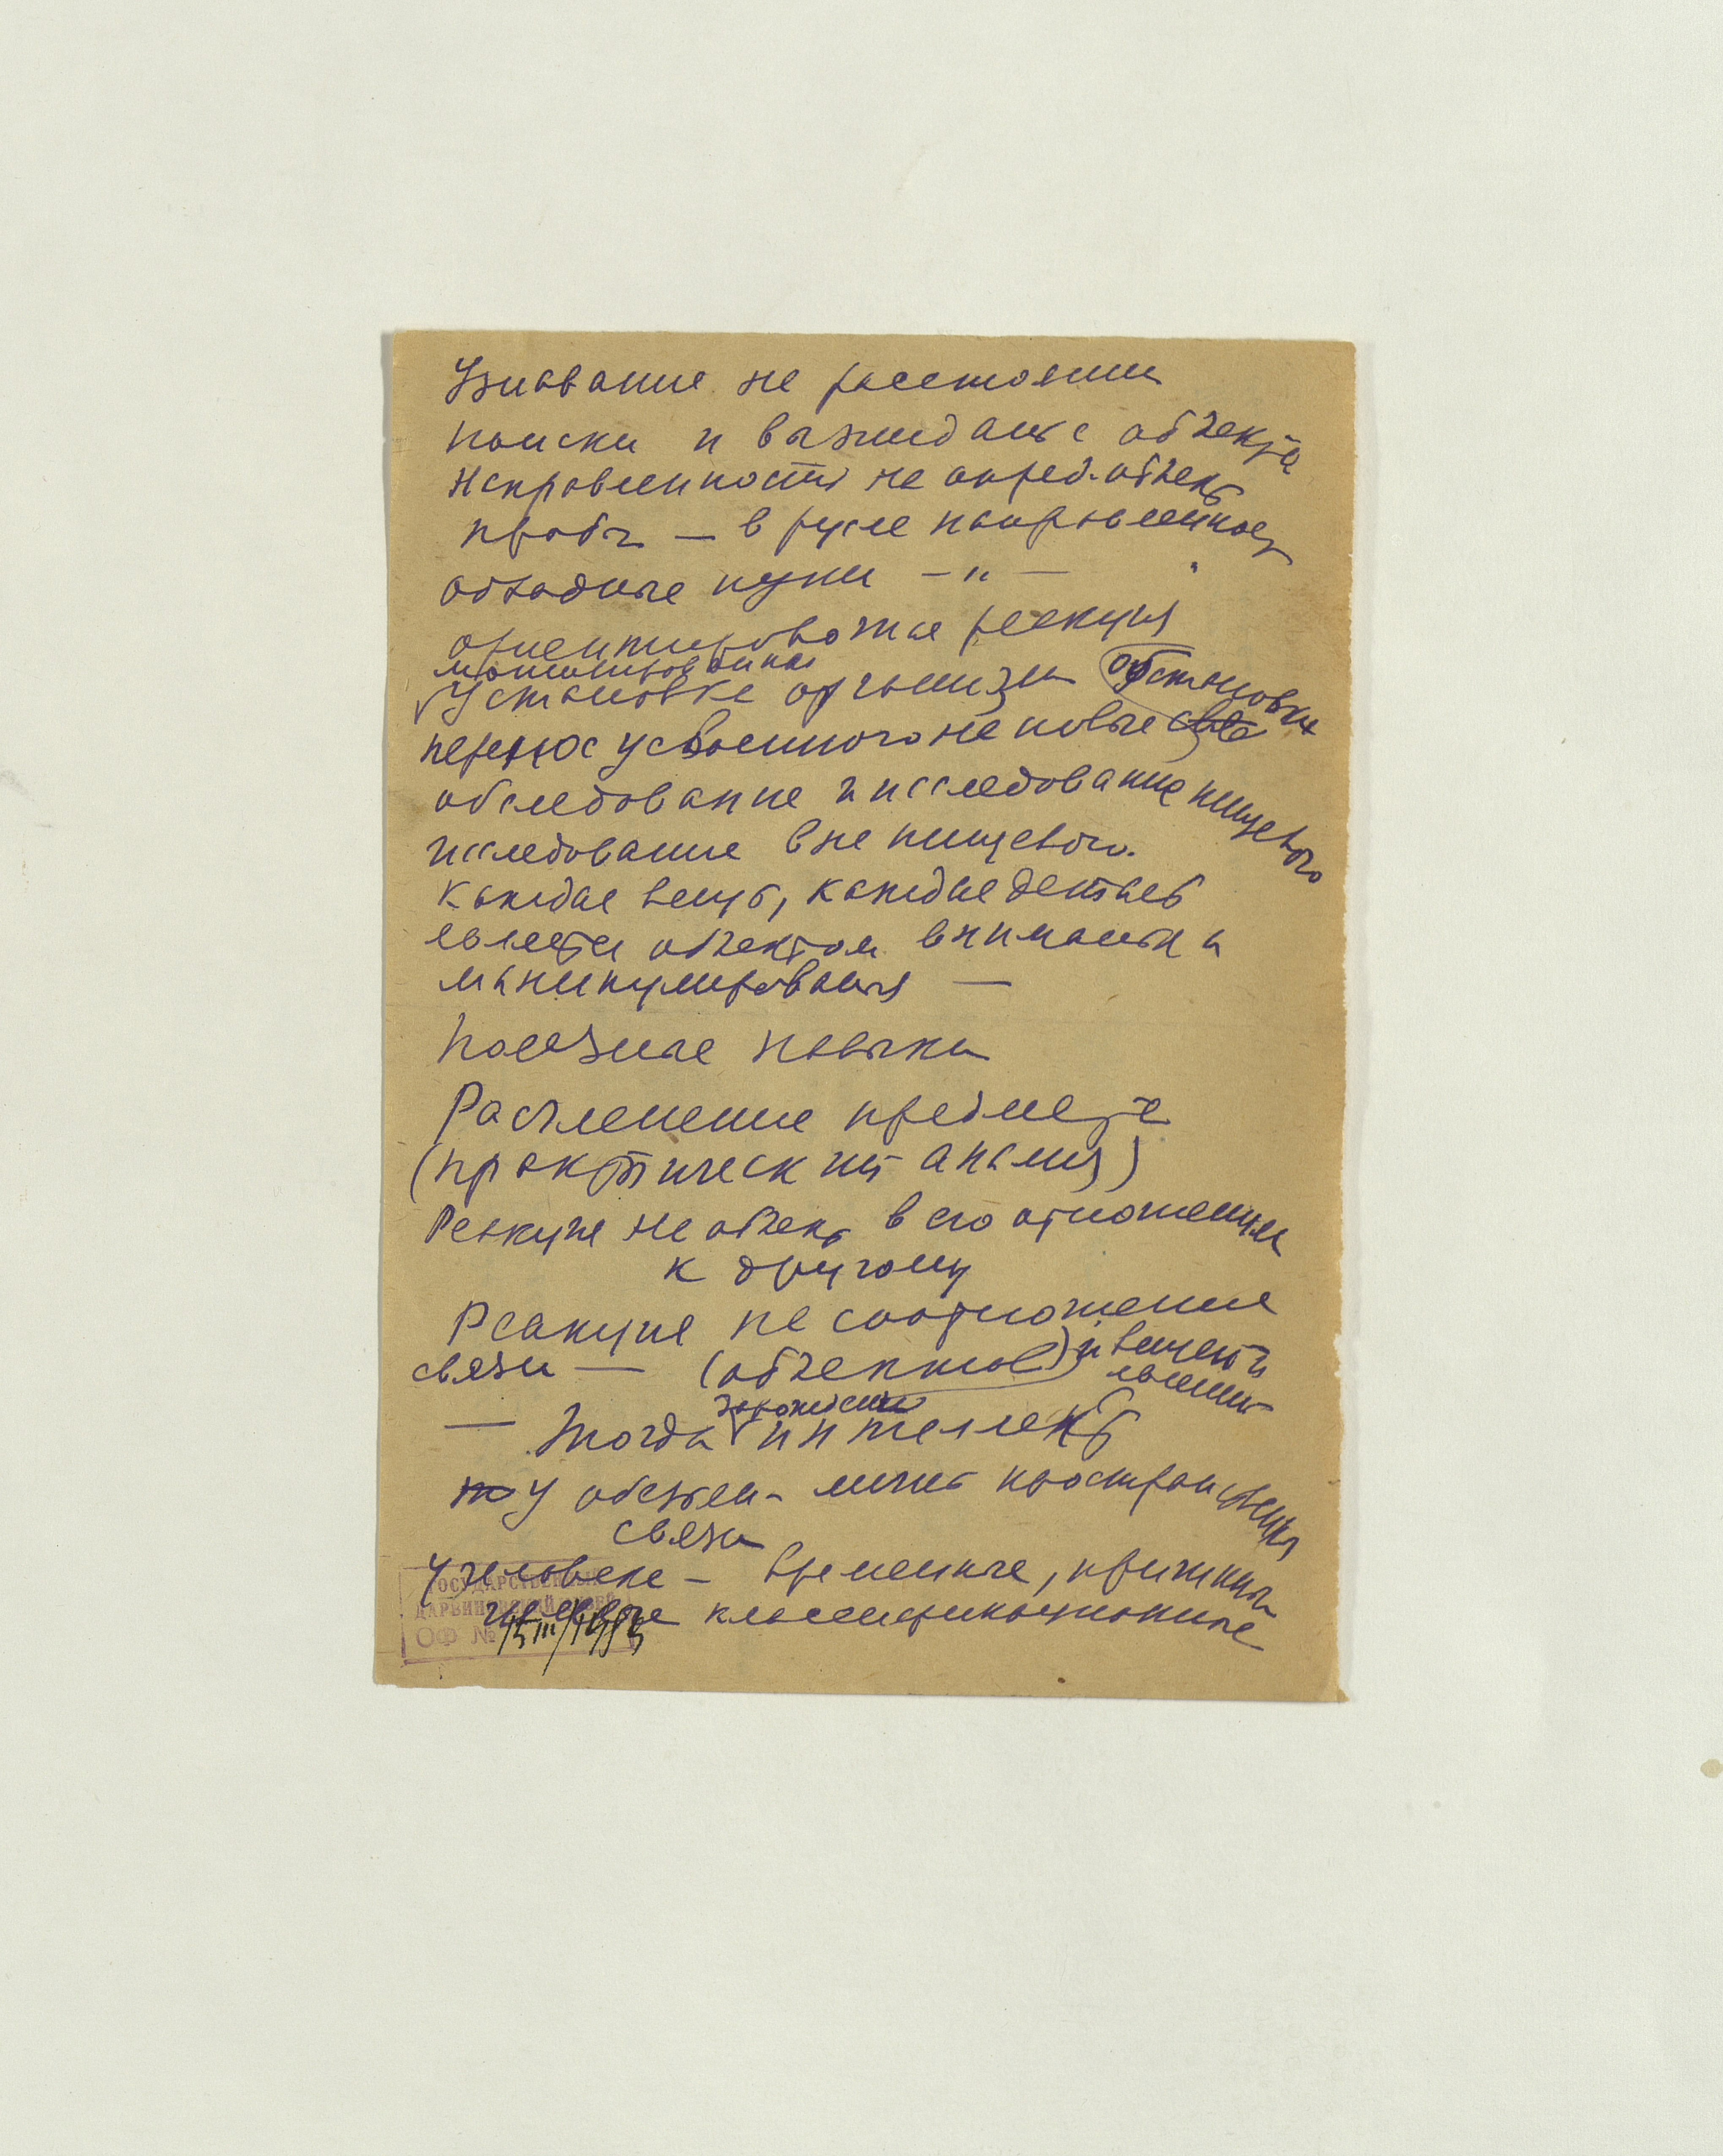 Узнавание на расстоянии
поиски и выжидание объекта
направленность на опред. объект
пробы — в русле направленност
обходные пути — " —
ориентировочная реакция
манипулирования
Установка организм обстановки
перенос усвоенного на новые
обследование и исследование пищевого
исследование вне пищевого.
каждая вещь, каждая деталь
является объектом внимания и
манипулирования —
Полезные навыки
Расчленение предмета
(практический анализ)
Реакция на объект в его отношении
к другому
Реакция на соотношение
связи — (объектов) и вещей и
явлений
зарождение
— Тогда интеллект
У обезьян - лишь пространствен
связи
У человека - временные, причинные
целевые классификационные
ГОСУДАРСТВЕННЫЙ
ДАРВИНОВСКИЙ МУЗЕЙ
ОФ №